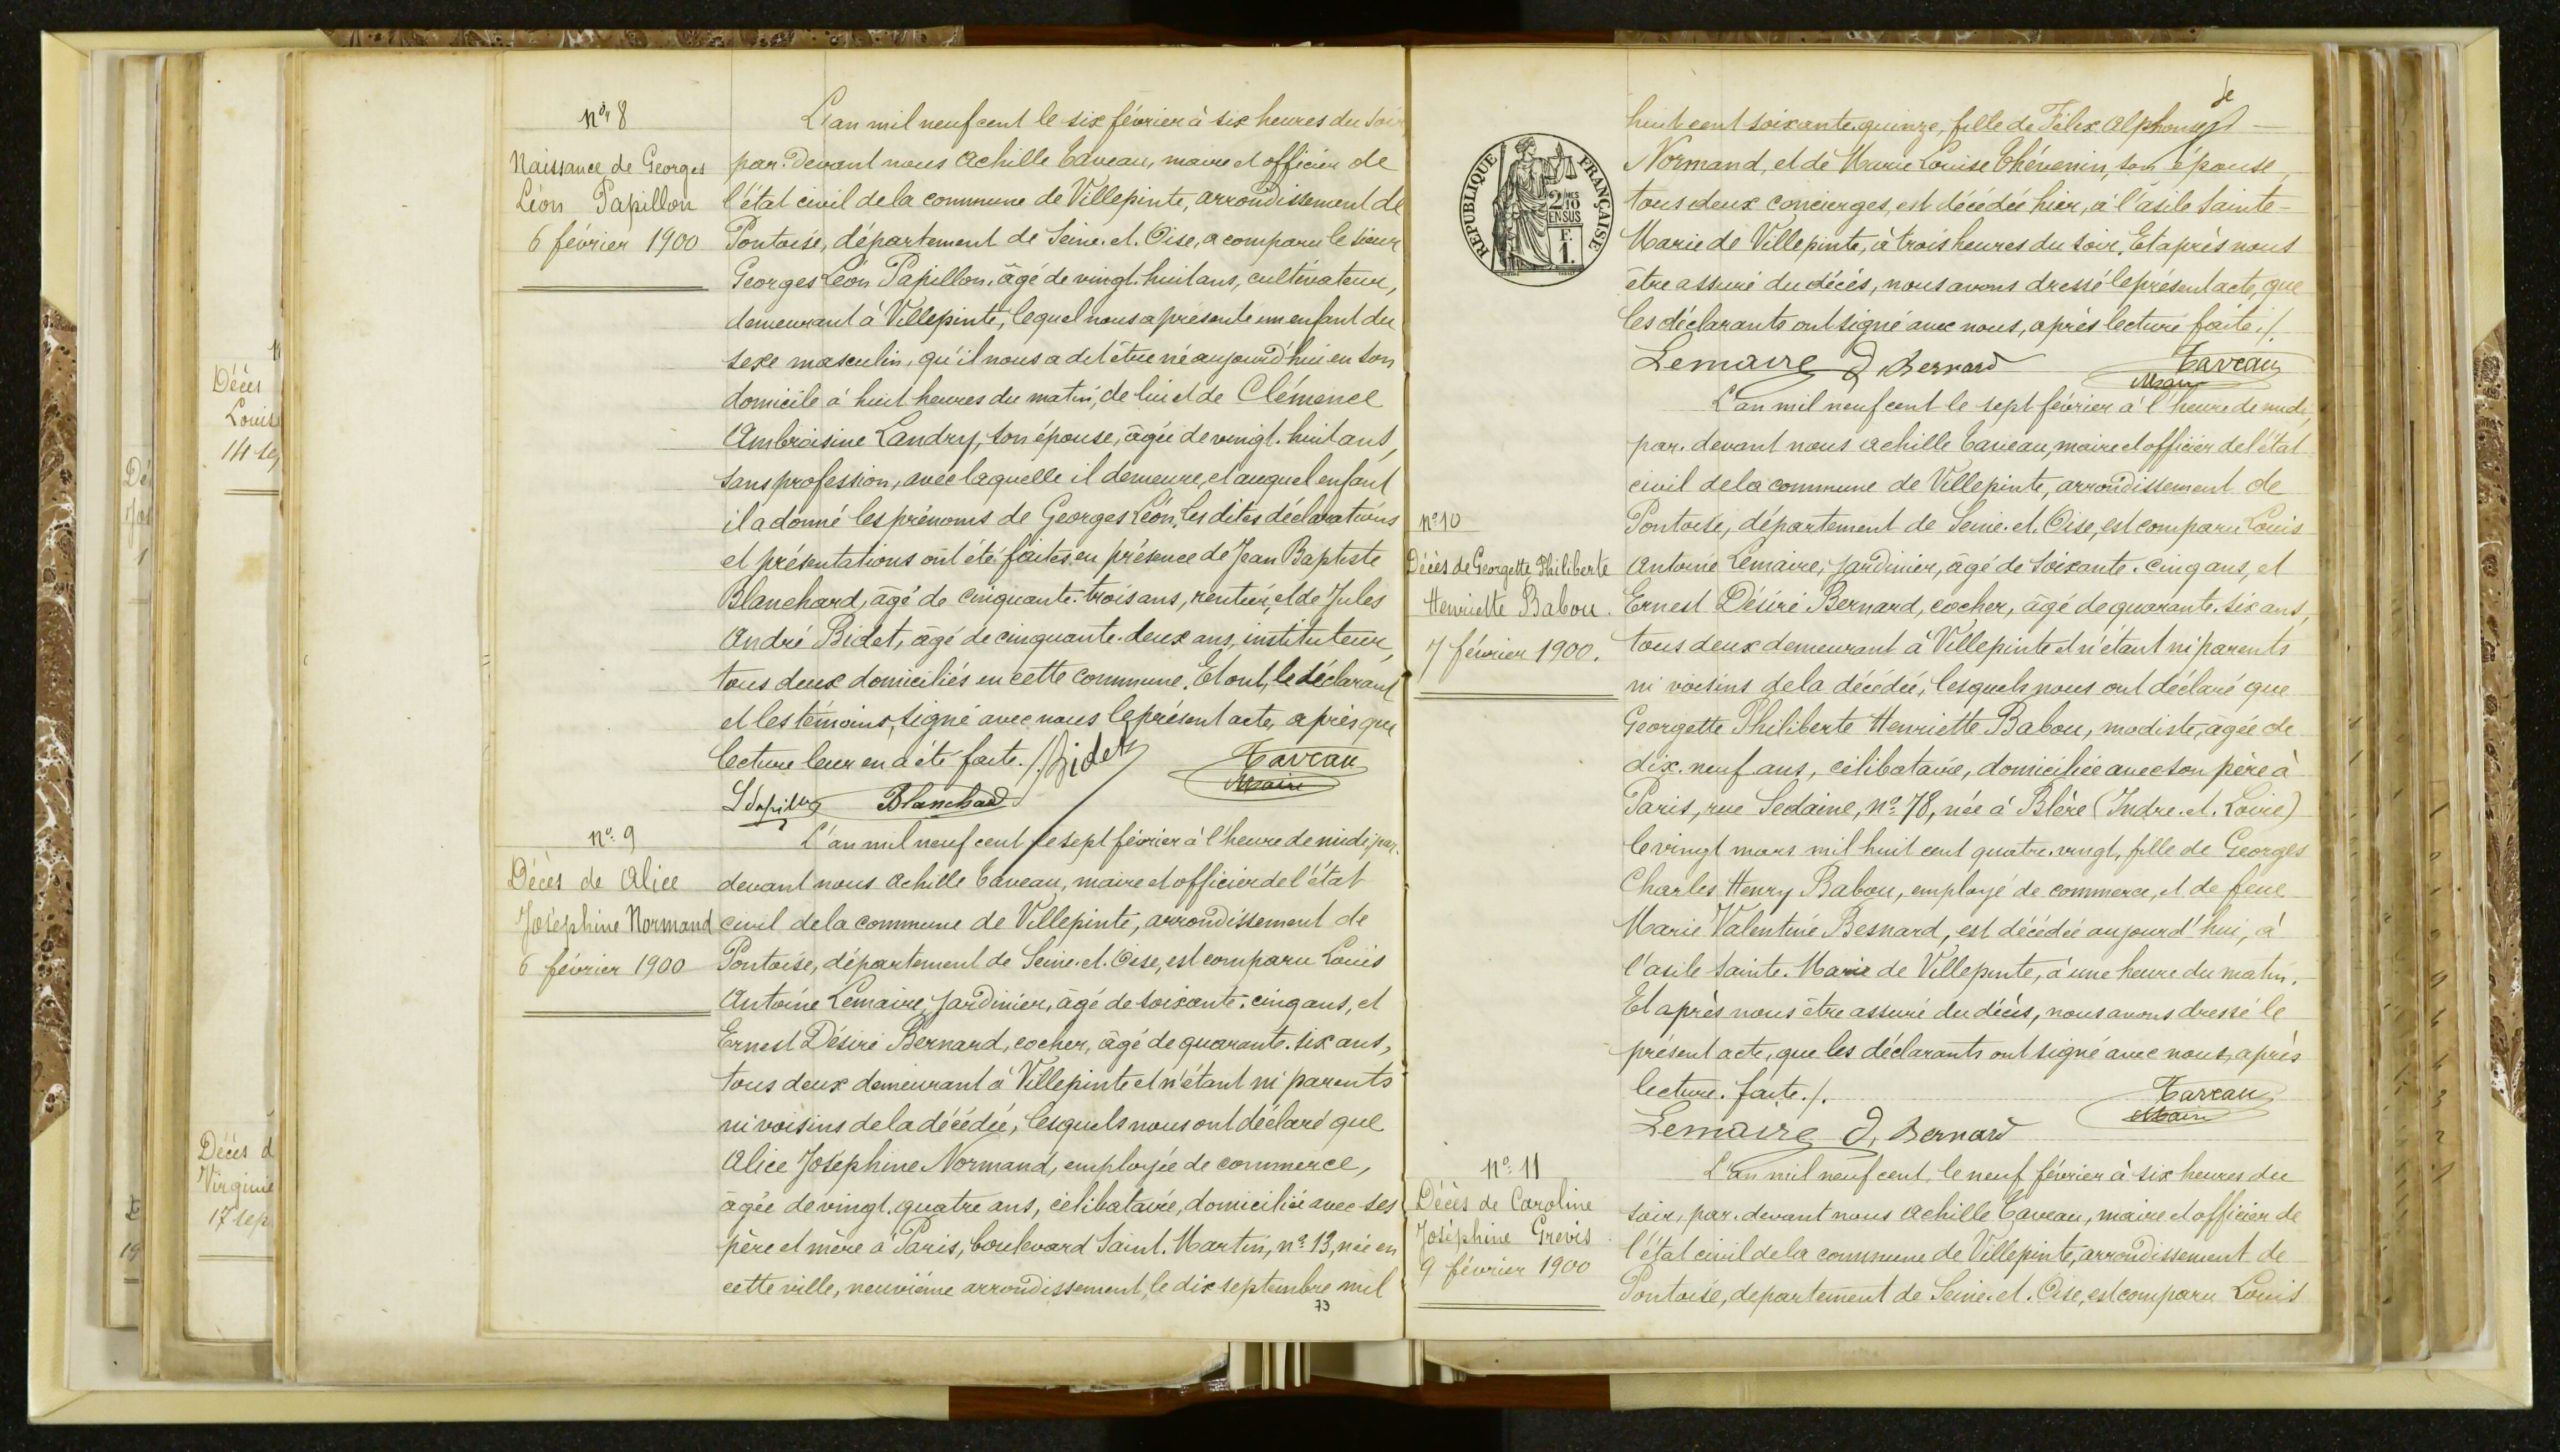 Nos 8
Naissance de Georges
Léon Papillon
6 février 1900
L'an mil neuf cent le six février à six heures du soir
par-devant nous Achille Taveau, maire et officier de
l'état civil de la commune de Villepinte, arrondissement de
Pontoise, département de Seine-et-Oise, a comparu le sieur
Georges Léon Papillon, âgé de vingt-huit ans, cultivateur,
demeurant à Villepinte, lequel nous a présenté un enfant du
sexe masculin, qu'il nous a dit être né aujourd'hui en son
domicile à huit heures du matin, de lui et de Clémence
Ambroisine Landry, son épouse, âgée de vingt-huit ans,
sans profession, avec laquelle il demeure, et auquel enfant
il a donné les prénoms de Georges Léon, les dites déclarations
et présentations ont été faites en présence de Jean Baptiste
Blanchard, âgé de cinquante-trois ans, rentier, et de Jules
André Bidet, âgé de cinquante-deux ans, instituteur,
tous deux domiciliés en cette commune. Et ont, le déclarant
et les témoins, signé avec nous le présent acte, après que
lecture leur en a été faite./. Bidet Taveau
Blanchard Maire
No 9
Décès de Alice
Joséphine Normand
6 février 1900
L'an mil neuf cent le sept février à l'heure de midi par-
devant nous Achille Taveau, maire et officier de l'état
civil de la commune de Villepinte, arrondissement de
Pontoise, département de Seine-et-Oise, est comparu Louis
Antoine Lemaire, jardinier, âgé de soixante-cinq ans, et
Ernest Désiré Bernard, cocher, âgé de quarante-six ans,
tous deux demeurant à Villepinte et n'étant ni parents
ni voisins de la décédée, lesquels nous ont déclaré que
Alice Joséphine Normand, employée de commerce,
âgée de vingt-quatre ans, célibataire, domiciliée avec ses
père et mère à Paris, boulevard Saint-Martin, no 13, née en
cette ville, neuvième arrondissement, le dix septembre mil
73
REPUBLIQUE FRANÇAISE
2/10 EN SUS
F. 1.
huit cent soixante-quinze, fille de Félix Alphonse
Normand, et de Marie Louise Thévenin, son épouse,
tous deux concierges, est décédée hier, à l'asile Sainte-
Marie de Villepinte, à trois heures du soir. Et après nous
être assuré du décès, nous avons dressé le présent acte, que
les déclarants ont signé avec nous, après lecture faite./.
Lemaire D. Bernard Taveau
Maire
No 10
Décès de Georgette Philiberte
Henriette Babou.
7 février 1900.
L'an mil neuf cent le sept février à l'heure de midi,
par-devant nous Achille Taveau, maire et officier de l'état
civil de la commune de Villepinte, arrondissement de
Pontoise, département de Seine-et-Oise, est comparu Louis
Antoine Lemaire, jardinier, âgé de soixante-cinq ans, et
Ernest Désiré Bernard, cocher, âgé de quarante-six ans,
tous deux demeurant à Villepinte et n'étant ni parents
ni voisins de la décédée, lesquels nous ont déclaré que
Georgette Philiberte Henriette Babou, modiste, âgée de
dix-neuf ans, célibataire, domiciliée avec son père à
Paris, rue Sedaine, no 78, née à Bléré (Indre-et-Loire)
le vingt mars mil huit cent quatre-vingt, fille de Georges
Charles Henry Babou, employé de commerce, et de feue
Marie Valentine Besnard, est décédée aujourd'hui, à
l'asile Sainte-Marie de Villepinte, à une heure du matin.
Et après nous être assuré du décès, nous avons dressé le
présent acte, que les déclarants ont signé avec nous, après
lecture faite./. Taveau
Lemaire D. Bernard Maire
No 11
Décès de Caroline
Joséphine Grevis
9 février 1900
L'an mil neuf cent, le neuf février à six heures du
soir, par-devant nous Achille Taveau, maire et officier de
l'état civil de la commune de Villepinte, arrondissement de
Pontoise, département de Seine-et-Oise, est comparu Louis
Décès
Louis
14 se
Décès d
Virginie
17 sep